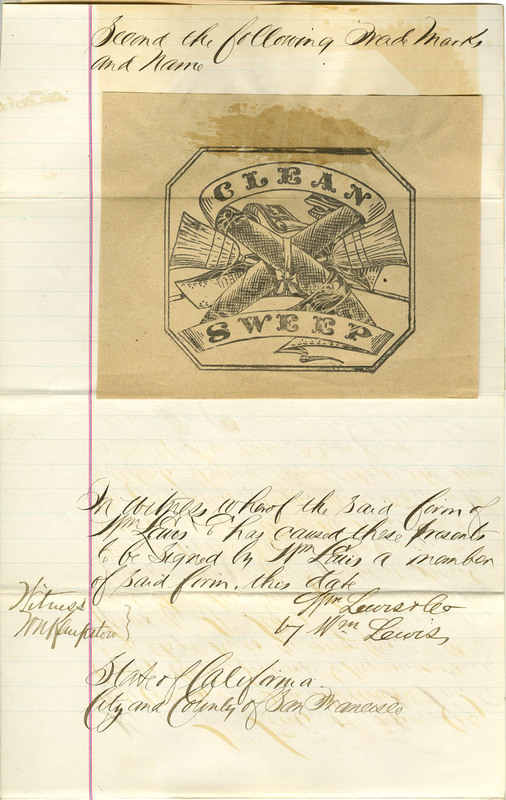 Second the following Trade Marks
and Name
CLEAN
SWEEP
In witness whereof the said firm of
Wm Lewis & Co has caused these presents
to be signed by Wm Lewis a member
of said firm, this date
Wm Lewis & Co
by Wm Lewis
Witness
State of California
City and County of San Francisco